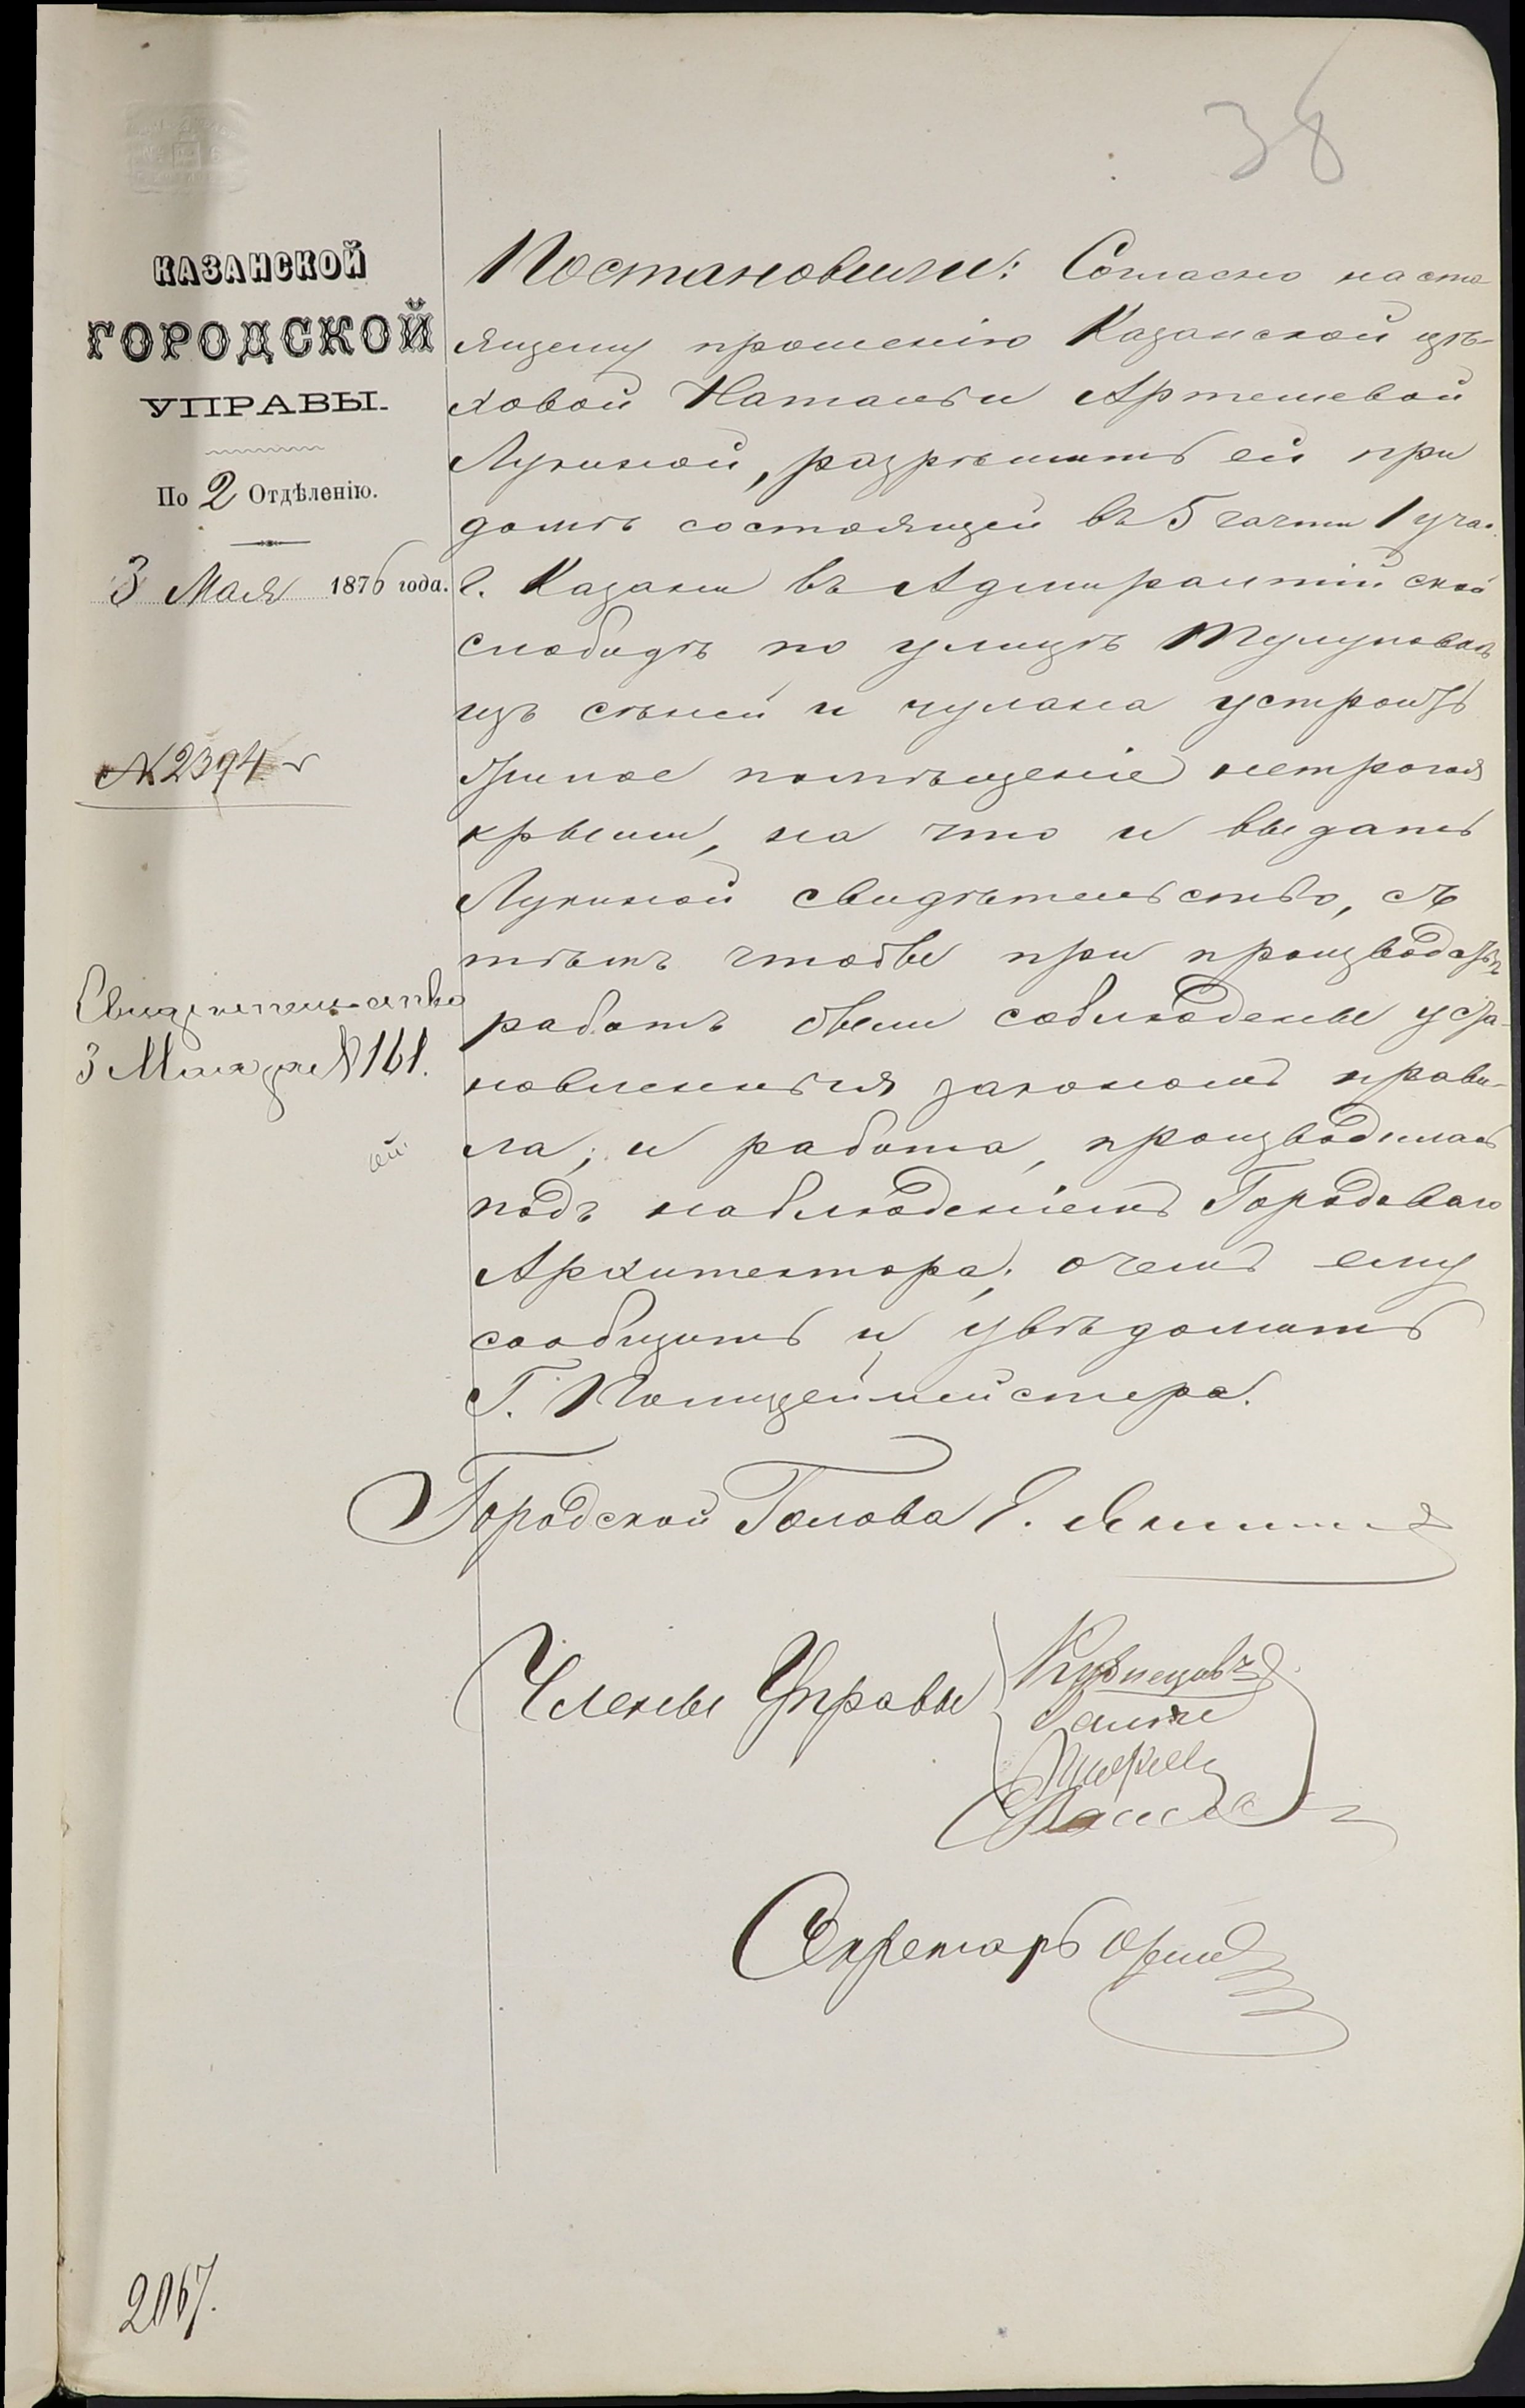 38
КАЗАНСКОЙ
ГОРОДСКОЙ
УПРАВЫ.
По 2 Отдѣленію.
3 Мая 1876 года.
№ 2394
Свидетельство
3 Мая за № 161.
Постановили: Согласно насто
ящему прошенію Казанской цѣ-
ховой Натальи Артемьевой
Лукиной, разрѣшить ей при
домѣ состоящей въ 5 части 1 учас.
г. Казани въ Адмиралтійской
слободѣ по улицѣ Тулуповой
изъ сѣней и чулана устроить
жилое помѣщеніе нетрогая
крыши, на что и выдать
Лукиной свидѣтельство, съ
тѣмъ чтобы при производствѣ
работъ были соблюдены уста-
новленныя закономъ прави-
ла, и работа, производилась
подъ наблюденіемъ Городоваго
Архитектора, о чемъ ему
сообщить и увѣдомить
Г. Полицеймейстера.
Городской Голова
Члены Управы
Кузнецовъ
Секретарь
2067.